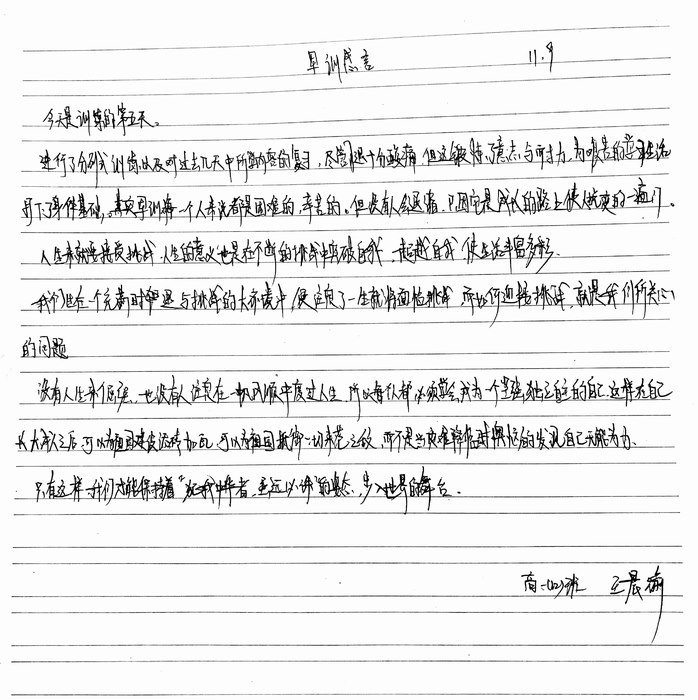 军训感言 11.9
今天是训练的第五天。
进行了分列式训练以及对过去几天中所学内容的复习，尽管腿十分酸痛，但这锻炼了意志与耐力，为以后的学习生活
打下了身体基础。其实军训每一个人来说都是困难的，辛苦的。但没有人会退缩，只因它是成长的路上使人蜕变的一扇门。
人生来就要接受挑战，人生的意义也是在不断的挑战中突破自我，超越自我，使生活丰富多彩。
我们生在一个充满时机遇与挑战的大环境中，便注定了一生都将面临挑战，而如何迎接挑战，就是我们所关心
的问题
没有人生来倔强，也没有人注定在一帆风顺中度过人生，所以每个人都必须学会成为一个坚强独立自主的自己，这样在自己
长大成人之后，可以为祖国建设添砖加瓦，可以为祖国抵御一切来犯之敌，而不是当灾难降临时懊恼的发现自己无能为力。
只有这样，我们才能保持着"犯我中华者，虽远必诛"的姿态，步入世界的舞台。
高一(12)班 王晨瑜